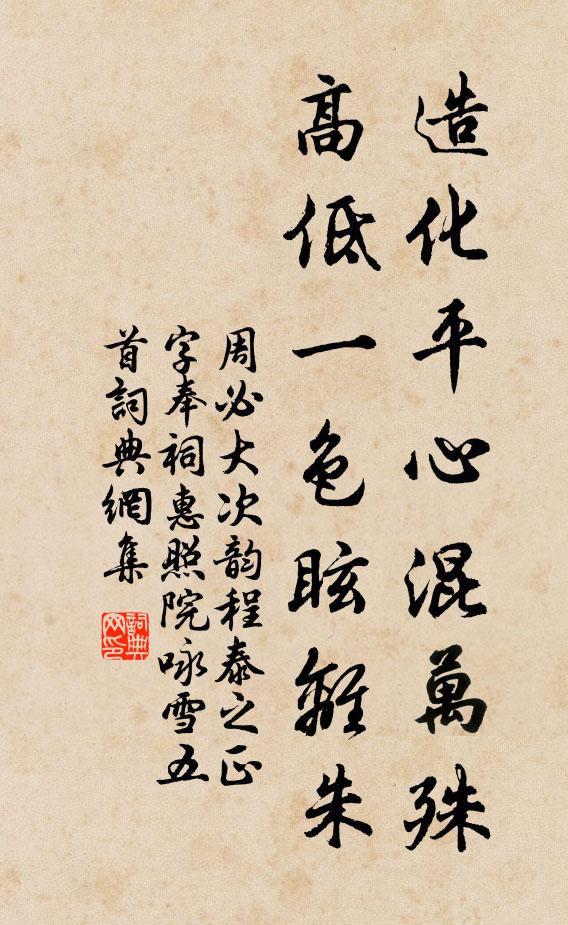 造化平心混萬殊
高低一色眩離朱
周必大次韵程泰之正
字奉祠惠照院咏雪五
首詞典網集
詞典網印